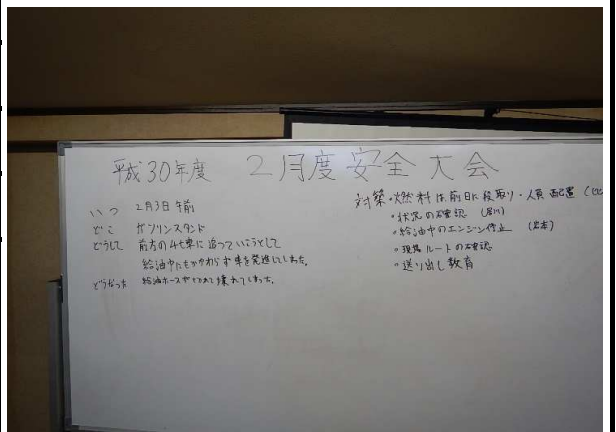 平成30年度 2月度安全大会
いつ 2月3日 午前
どこ ガソリンスタンド
どうして 前方の4t車に追っていこうとして
給油中にもかかわらず車を発進してしまった。
どうなった 給油ホースが 壊れてしまった。
対策・燃料は前日に段取り・人員配置
・状況の確認
・給油中のエンジン停止 (岩本)
・現場ルートの確認
・送り出し教育